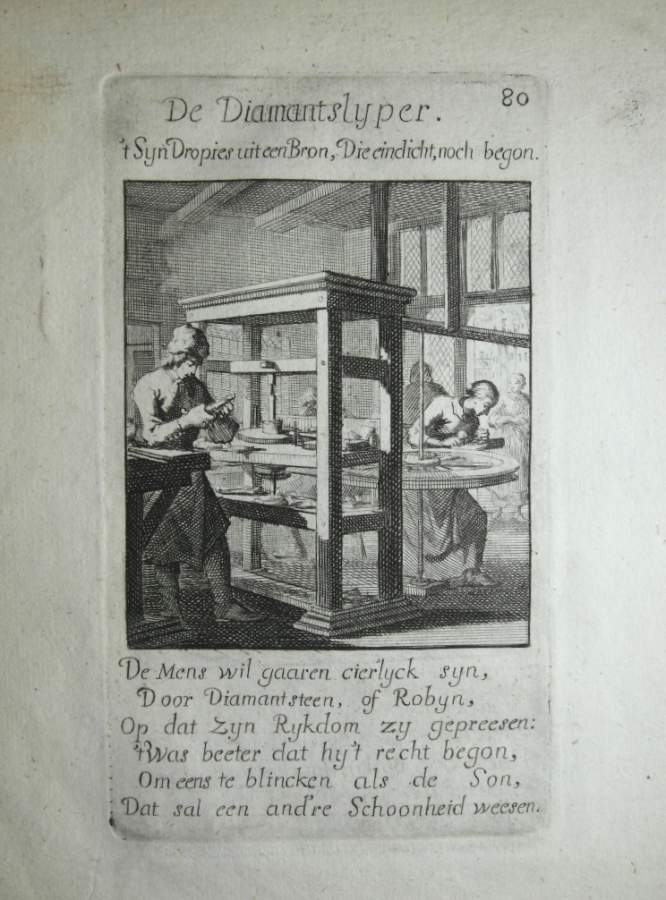 De Diamantslyper.
80
't Syn Dropies uit een Bron, Die eind icht, noch begon.
De Mens wil gaaren cierlyck syn,
Door Diamantsteen, of Robyn,
Op dat Zyn Rykdom zy gepreesen:
't Was beeter dat hy't recht begon,
Om eens te blincken als de Son,
Dat sal een and're Schoonheid weesen.